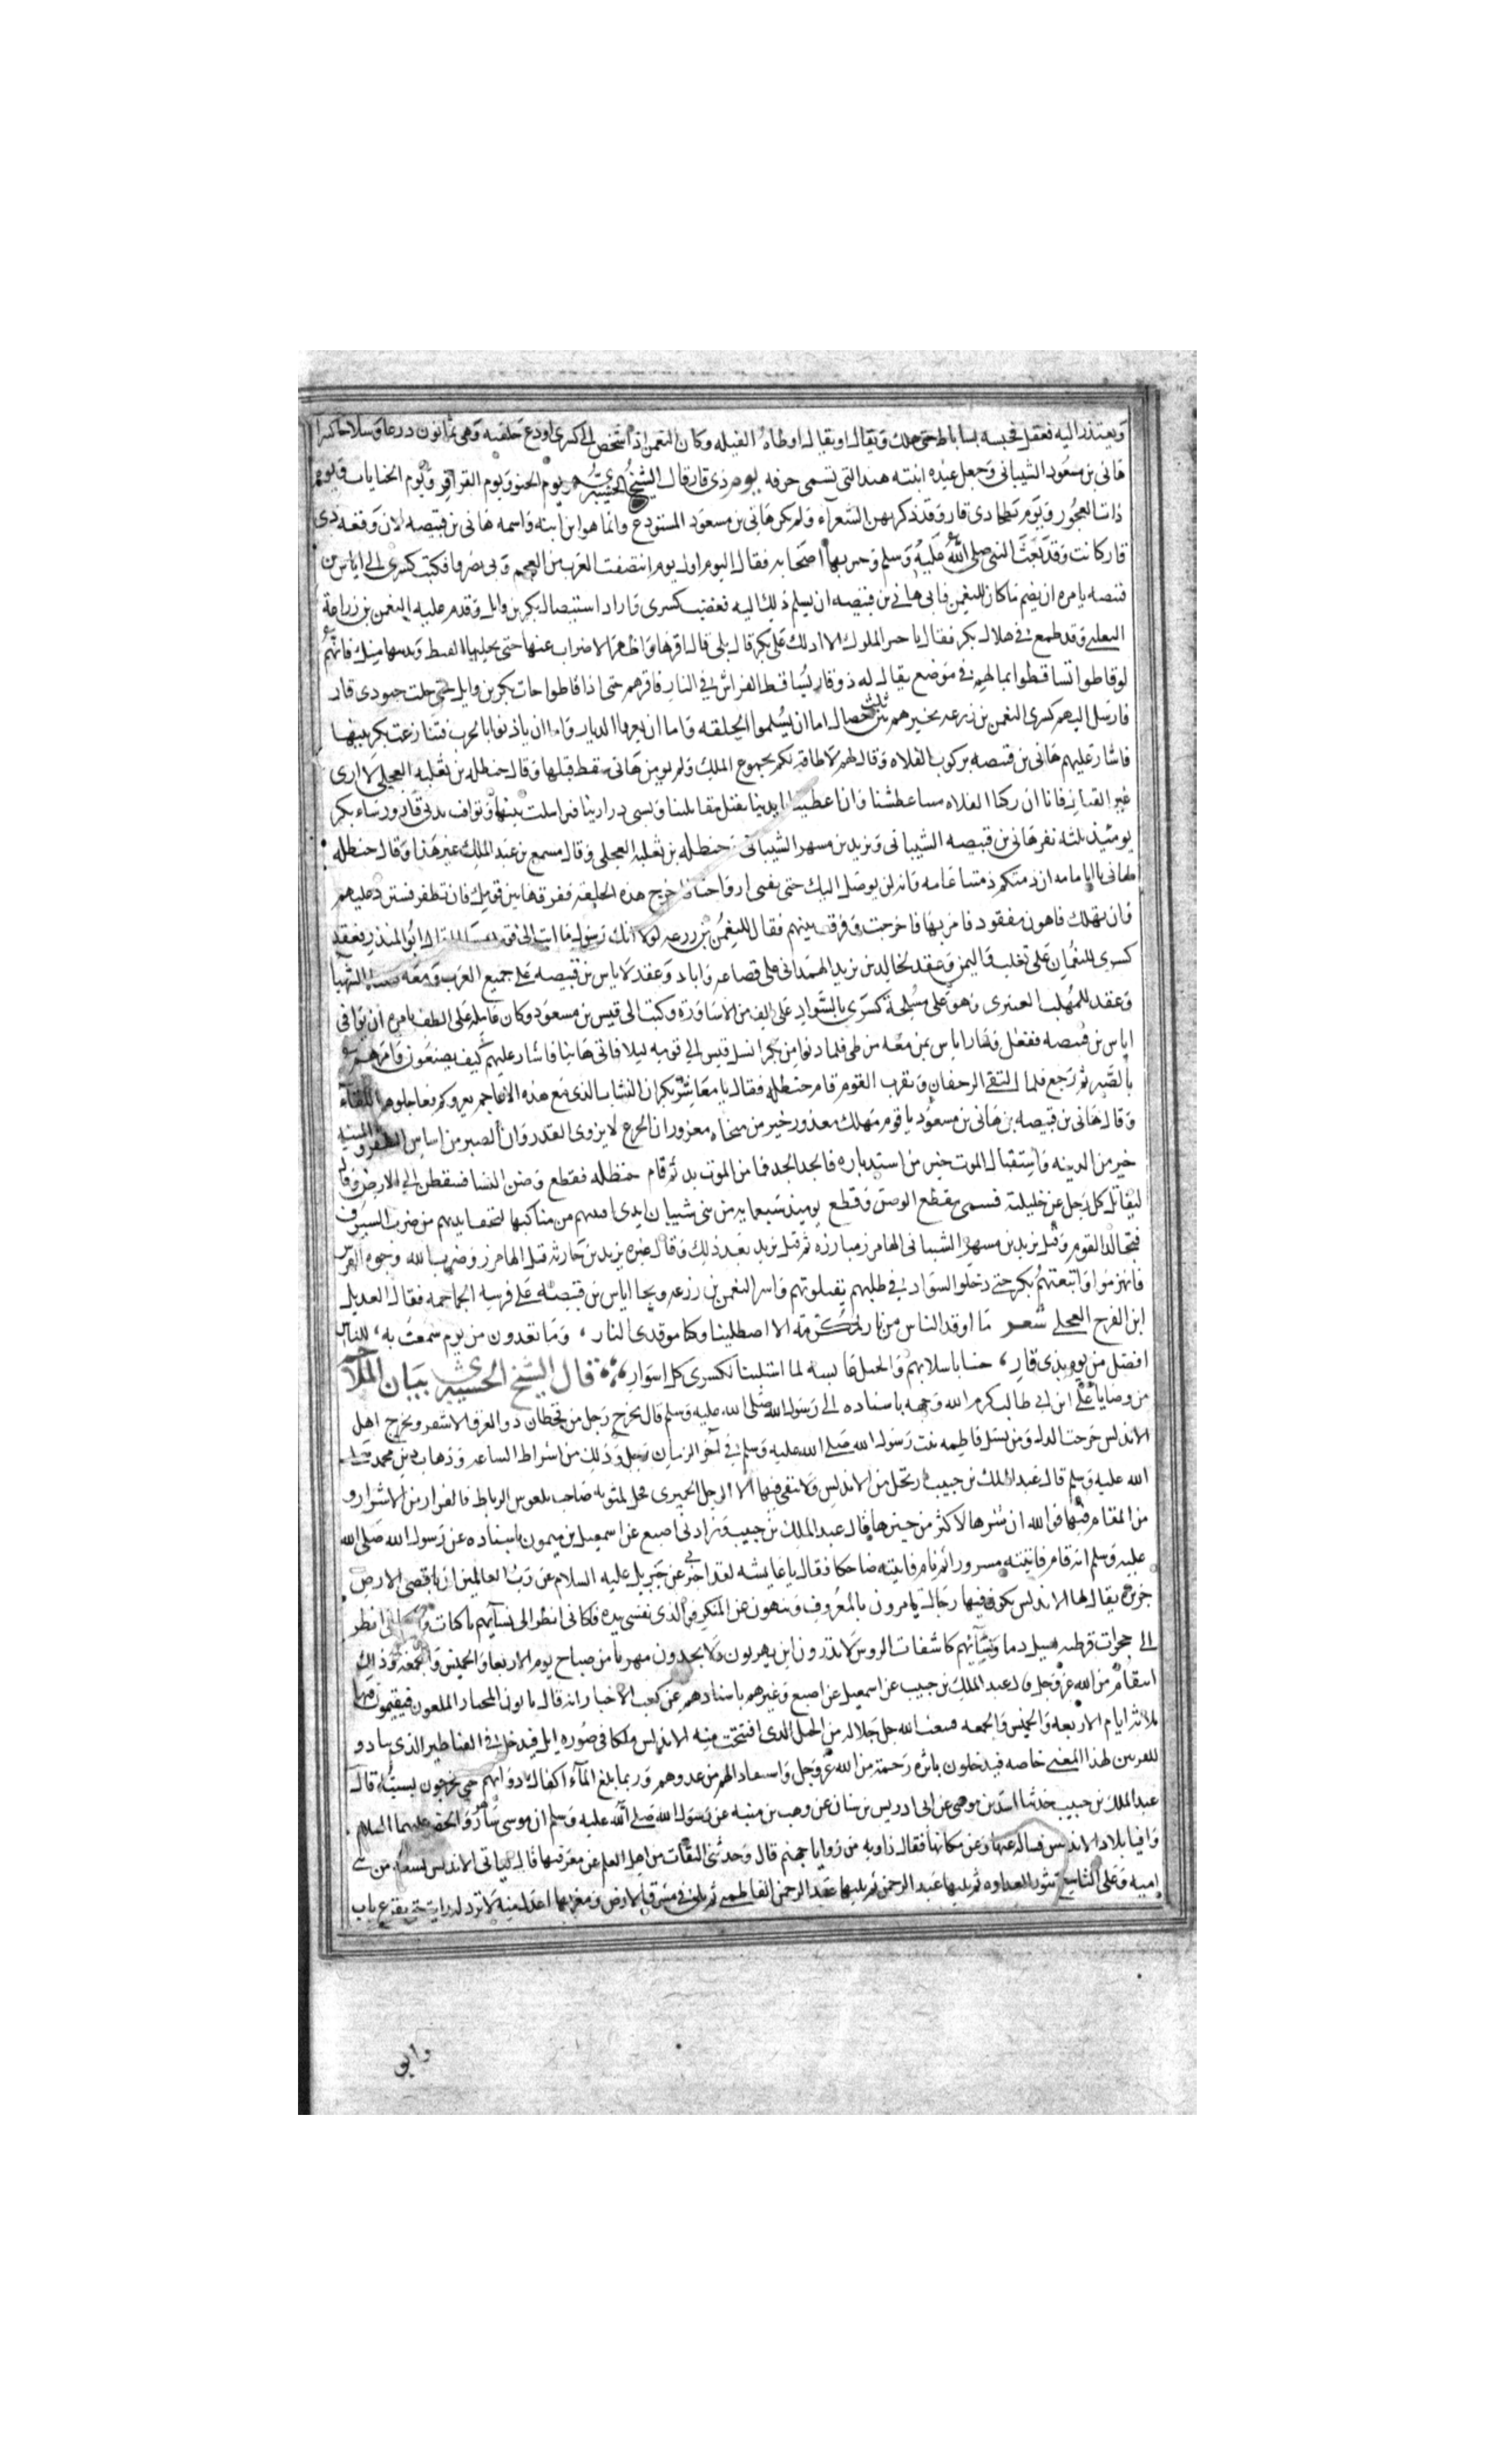 ويعتذر اليه ففعل فحبسه بساباط حتى هلك ويقال او يقال اوطاه الفيله وكان النعمن اذا شخص الى كسرى اودع حلقته وهى ثمانون درعا وسلاحا كثيرا
هانى بن مسعود الشيبانى وجعل عنده ابنته هند التى تسمى حرقه يوم ذى قار قال الشيخ ويوم الحنو ويوم القراقر ويوم الجبايات ويوم
ذات العجور ويوم بطحا ذى قار وقد ذكرهن الشعرآء ولم يكن هانى بن مسعود المستودع وانما هو ابن ابنه واسمه هانى بن قبيصه لان وقعه ذى
قار كانت وقد بعث النبى صلى الله عليه وسلم وخبر بها اصحابه فقال اليوم اول يوم انتصفت العرب من العجم وبى نصروا فكتب كسرى الى اياس بن
قبيصه يامره ان يضم ما كان للنعمن فابى هانى بن قبيصه ان يسلم ذلك اليه فغضب كسرى واراد استيصال بكر بن وايل وقدم عليه النعمن بن زراعة
التغلبى وقد طمع فى هلاك بكر فقال يا خير الملوك الا ادلك على بكر قال بلى قال اقرها واظهر الاضراب عنها حتى يجليها القيظ ويدنيها منك فانهم
لو قاظوا تساقطوا بمالهم فى موضع يقال له ذو قار تساقط الفراش فى النار فاقرهم حتى اذا قاظوا جات بكر بن وايل حتى حلت حنو ذى قار
فارسل اليهم كسرى النعمن بن زرعه يخيرهم ثلث خصال اما ان يسلموا الحلقه واما ان يعروا الديار واما ان ياذنوا بالحرب فتنازعت بكر بينها
فاشار عليهم هانى بن قبيصه بركوب الفلاه وقال لهم لا طاقة لكم بجموع الملك ولم ير من هانى سقط قبلها وقال حنظله بن ثعلبه العجلى لا ارى
غير القتال فانا ان ركبنا الفلاه متنا عطشا وان اعطينا بايدينا نقتل مقاتلتنا وتسبى ذرارينا فراسلت بينها وتوافت بذى قار ورساء بكر
يومئذ ثلثه نفر هانى بن قبيصه الشيبانى ويزيد بن مسهر الشيبانى وحنظله بن ثعلبه العجلى وقال مسمع بن عبد الملك غير هذا وقال حنظله
لهانى يا ابا مامه ان ذمتكم ذمتنا عامه وانه لن يوصل اليك حتى يفنى ارواحنا فاخرج هذه الحلقه ففرقها بين قومك فان تظفر فستزد عليهم
فان تهلك فاهون مفقود فامر بها فاخرجت وفرقت بينهم فقال للنعمن بن زرعه لولا انك رسول ما ابت الى قومك ابو المنذر فعقد
كسرى للنعمان على تغلب واليمن وعقد لخالد بن يزيد الهمدانى على قضاعه واياد وعقد لاياس بن قبيصه على جميع العرب ومعه الشهبا
وعقد للهلب العسرى وهو على مسلحة كسرى بالسواد على الف من الاساورة وكتب الى قيس بن مسعود وكان عامله على الطف يامره ان يوافى
اياس بن قبيصه ففعل وسار اياس بمن معه من طى فلما دنوا من بكر انسل قيس الى قومه ليلا فاتى هانيا فاشار عليهم كيف يصنعون وامرهم
بالصبر ثم رجع فلما التقى الزحفان وتقرب القوم قام حنظله فقال يا معاشر بكر ان النشاب الذى مع هذه الاعاجم يعروكم فعاجلوهم اللقاء
وقال هانى بن قبيصه بن هانى بن مسعود يا قوم مهلك معذور خير من منجاه معزور ان الجزع لا يزوى القدر وان الصبر من اساس الظفر والمنيه
خير من الدنيه واستقبال الموت خير من استدباره فالجد الجد فما من الموت بد ثم قام حنظله فقطع وضن النسا فسقطن الى الارض وقال
ليقاتل كل رجل عن خليلته فسمى مقطع الوضن وقطع يوميذ سبعمايه من بنى شيبان ايدى اقبيتهم من مناكبها لتخف ايديهم من ضرب السيوف
فتجالد القوم وقتل يزيد بن مسهر الشيبانى الهامرز مبارزه ثم قتل يزيد بعد ذلك وقال غيره يزيد بن حارثه قتل الهامرز وضرب الله وجوه الفرس
فانهزموا واتبعتهم بكر حتى دخلوا السواد فى طلبهم يقتلونهم واسر النعمن بن زرعه ونجا اياس بن قبيصه على فرسه الجماحه فقال العديل
ابن الفرج العجلى شعر ما اوقد الناس من نار لمكرمة الا اصطلينا وكنا موقدى النار ، وما تعدون من يوم سمعت به ، للناس
افضل من يوم بذى قار ، جينا باسلابهم والخيل عابسه لما استلبنا لكسرى كل اسوار ، قال الشيخ بيان الملاحم
من وصايا على ابن ابى طالب كرم الله وجهه باسناده الى رسول الله صلى الله عليه وسلم قال يخرج رجل من قحطان ذو العرق الاشقر ويخرج اهل
الاندلس خرجت الدله ومن نسل فاطمه بنت رسول الله صلى الله عليه وسلم فى آخر الزمان رجل وذلك من اشراط الساعه وذهاب دين محمد صلى
الله عليه وسلم قال عبد الملك بن حبيب يرتحل من الاندلس ولا يبقى فيها الا الرجل الحميرى صاحب الرباط فالفرار من الاشرار و
من المقام فيها فوالله ان شرها لاكثر من خيرها قال عبد الملك بن حبيب وزادنى اصبع عن اسمعيل بن ميمون باسناده عن رسول الله صلى الله
عليه وسلم انه قام فاتيته مسرورا ثم نام فاتيته ضاحكا فقال يا عايشه لقد اخبرنى عن جبريل عليه السلام عن رب العالمين ان باقصى الارض
جزيره يقال لها الاندلس يكون فيها رجال يامرون بالمعروف وينهون عن المنكر والذى نفسى بيده فكانى انظر الى نسآيهم باكيات وكانى انظر
الى حجرات قرطبه تسيل دما ونسآئهم كاشفات الروس لا تدرون اين يهربون ولا يجدون مهربا من صباح يوم الاربعا والخميس والجمعه وذلك
انتقام من الله عز وجل قال عبد الملك بن حبيب عن اسمعيل عن اصبع وغيرهم باسنادهم عن كعب الاخبار انه قال ياتونى المجبار الملعون فيقيمون فيها
ثلاثه ايام الاربعه والخميس والجمعه فيبعث الله جل جلاله من الجبل الذى افتتحت منه الاندلس ملكا فى صوره ايل فيدخل فى القناطير الذى
لهذا المعنى خاصه فيدخلون باثره رحمة من الله عز وجل واستعاد لهم من عدوهم وربما بلغ المآء اكفال دوابهم حتى يخرجون بسبته قال
عبد الملك بن حبيب حدثنا اسد بن موسى عن ابى ادريس بن سنان عن وهب بن منبه عن رسول الله صلى الله عليه وسلم ان موسى سافر والخضر عليهما السلام
وافيا بلاد الاندلس فساله عنها وعن مكانها فقال زاويه من زوايا جهنم قال وحدثنى الثقات من اهل العلم عن معرفتها قال تاتى الاندلس تسعه من بنى
اميه وعلى التاسع تثور العداوه ثم يليها عبد الرحمن ثم يليها عبد الرحمن الفاطمى ثم فى مشرق الارض ومغربها لا ترد له راية حتى يقرع باب